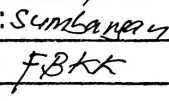 : Sumbangan
FBKK